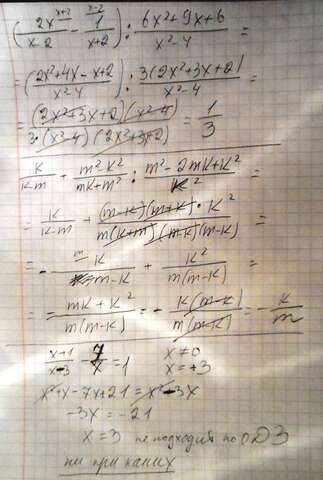 (2x^{x+2}/(x-2) - 1^{x-2}/(x+2)) : (6x²+9x+6)/(x²-4) =
= ((2x²+4x-x+2)/(x²-4)) : 3(2x²+3x+2)/(x²-4) =
= (2x²+3x+2)(x²-4)/(3·(x²-4)(2x²+3x+2)) = 1/3
k/(k-m) + (m²-k²)/(mk+m²) : (m²-2mk+k²)/k² =
= k/(k-m) + (m-k)(m+k)·k²/(m(k+m)(m-k)(m-k)) =
= -mk/(m-k) + k²/(m(m-k)) =
= = (mk+k²)/(m(m-k)) = - k(m-k)/(m(m-k)) = - k/m
(x+1)/(x-3) - 7/x = 1 x≠0
x=+3
x²+x-7x+21 = x²-3x
-3x = -21
x = 3 не подходит по ОДЗ
ни при каких